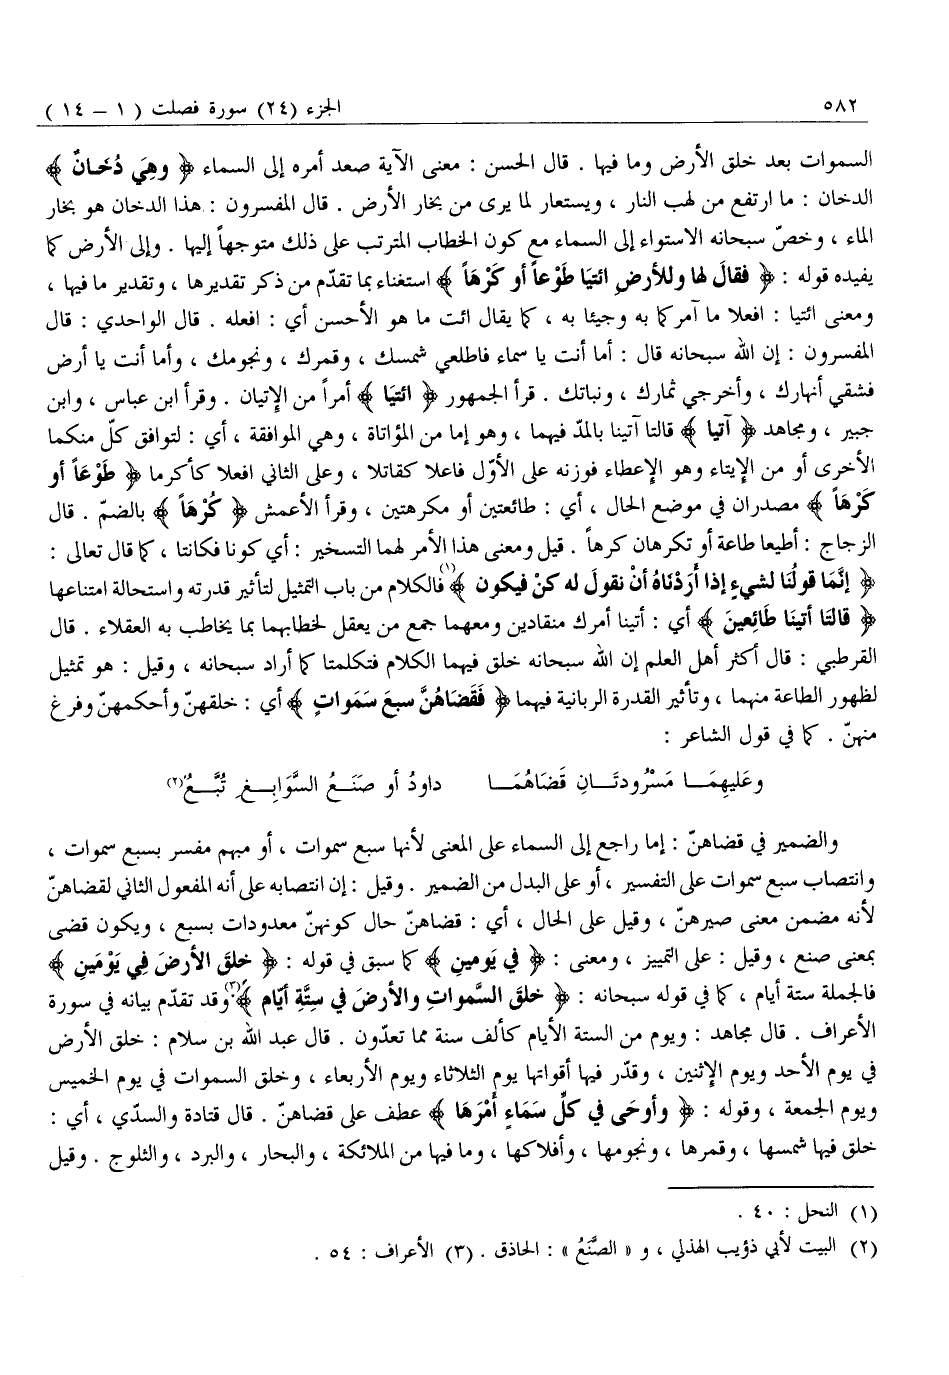 ٥٨٢ الجزء (٢٤) سورة فصلت ( ١ – ١٤ )
السموات بعد خلق الأرض وما فيها . قال الحسن : معنى الآية صعد أمره إلى السماء ﴿ وهِيَ دُخَـانٌ ﴾
الدخان : ما ارتفع من لهب النار ، ويستعار لما يرى من بخار الأرض . قال المفسرون : هذا الدخان هو بخار
الماء ، وخصّ سبحانه الاستواء إلى السماء مع كون الخطاب المترتب على ذلك متوجهاً إليها . وإلى الأرض كما
يفيده قوله : ﴿ فقالَ لها وللأرضِ ائتيَا طَوْعاً أو كَرْهَاً ﴾ استغناء بما تقدّم من ذكر تقديرها ، وتقدير ما فيها ،
ومعنى ائتيا : افعلا ما آمركما به وجيئا به ، كما يقال ائت ما هو الأحسن أي : افعله . قال الواحدي : قال
المفسرون : إن الله سبحانه قال : أما أنت يا سماء فاطلعي شمسك ، وقمرك ، ونجومك ، وأما أنت يا أرض
فشقي أنهارك ، وأخرجي ثمارك ، ونباتك . قرأ الجمهور ﴿ ائتيَا ﴾ أمراً من الإتيان . وقرأ ابن عباس ، وابن
جبير ، ومجاهد ﴿ آتيا ﴾ قالتا آتينا بالمدّ فيهما ، وهو إما من المؤاتاة ، وهي الموافقة ، أي : لتوافق كلّ منكما
الأخرى أو من الإيتاء وهو الإعطاء فوزنه على الأوّل فاعلا كقاتلا ، وعلى الثاني افعلا كأكرما ﴿ طَوْعَاً أو
كَرْهَاً ﴾ مصدران في موضع الحال ، أي : طائعتين أو مكرهتين ، وقرأ الأعمش ﴿ كُرْهَاً ﴾ بالضمّ . قال
الزجاج : أطيعا طاعة أو تكرهان كرهاً . قيل ومعنى هذا الأمر لهما التسخير : أي كونا فكانتا ، كما قال تعالى :
﴿ إنَّمَا قولُنَا لشيءٍ إذا أَرَدْنَاهُ أنْ نقولَ له كنْ فيكون ﴾(١) فالكلام من باب التمثيل لتأثير قدرته واستحالة امتناعها
﴿ قالتَا أتينَا طَائِعينَ ﴾ أي : أتينا أمرك منقادين ومعهما جمع من يعقل لخطابهما بما يخاطب به العقلاء . قال
القرطبي : قال أكثر أهل العلم إن الله سبحانه خلق فيهما الكلام فتكلمتا كما أراد سبحانه ، وقيل : هو تمثيل
لظهور الطاعة منهما ، وتأثير القدرة الربانية فيهما ﴿ فَقَضَاهُنَّ سبعَ سَمَواتٍ ﴾ أي : خلقهنّ وأحكمهنّ وفرغ
منهنّ . كما في قول الشاعر :
وعَليهِمَـا مَسْرُودتَـانِ قَضَاهُمَـا داودُ أو صَنَـعُ السَّوَابِـغِ تُبَّـعُ(٢)
والضمير في قضاهنّ : إما راجع إلى السماء على المعنى لأنها سبع سموات ، أو مبهم مفسر بسبع سموات ،
وانتصاب سبع سموات على التفسير ، أو على البدل من الضمير . وقيل : إن انتصابه على أنه المفعول الثاني لقضاهنّ
لأنه مضمن معنى صيرهنّ ، وقيل على الحال ، أي : قضاهنّ حال كونهنّ معدودات بسبع ، ويكون قضى
بمعنى صنع ، وقيل : على التمييز ، ومعنى : ﴿ في يَومينِ ﴾ كما سبق في قوله : ﴿ خلقَ الأرضَ فِي يَوْمَينِ ﴾
فالجملة ستة أيام ، كما في قوله سبحانه : ﴿ خلقَ السَّمواتِ والأرضَ في ستَّةِ أيّام ﴾(٣) وقد تقدّم بيانه في سورة
الأعراف . قال مجاهد : ويوم من الستة الأيام كألف سنة مما تعدّون . قال عبد الله بن سلام : خلق الأرض
في يوم الأحد ويوم الإثنين ، وقدّر فيها أقواتها يوم الثلاثاء ويوم الأربعاء ، وخلق السموات في يوم الخميس
ويوم الجمعة ، وقوله : ﴿ وأوحَى في كلِّ سَمَاءٍ أَمْرَهَا ﴾ عطف على قضاهنّ . قال قتادة والسدّي ، أي :
خلق فيها شمسها ، وقمرها ، ونجومها ، وأفلاكها ، وما فيها من الملائكة ، والبحار ، والبرد ، والثلوج . وقيل
(١) النحل : ٤٠ .
(٢) البيت لأبي ذؤيب الهذلي ، و « الصَّنَعُ » : الحاذق . (٣) الأعراف : ٥٤ .